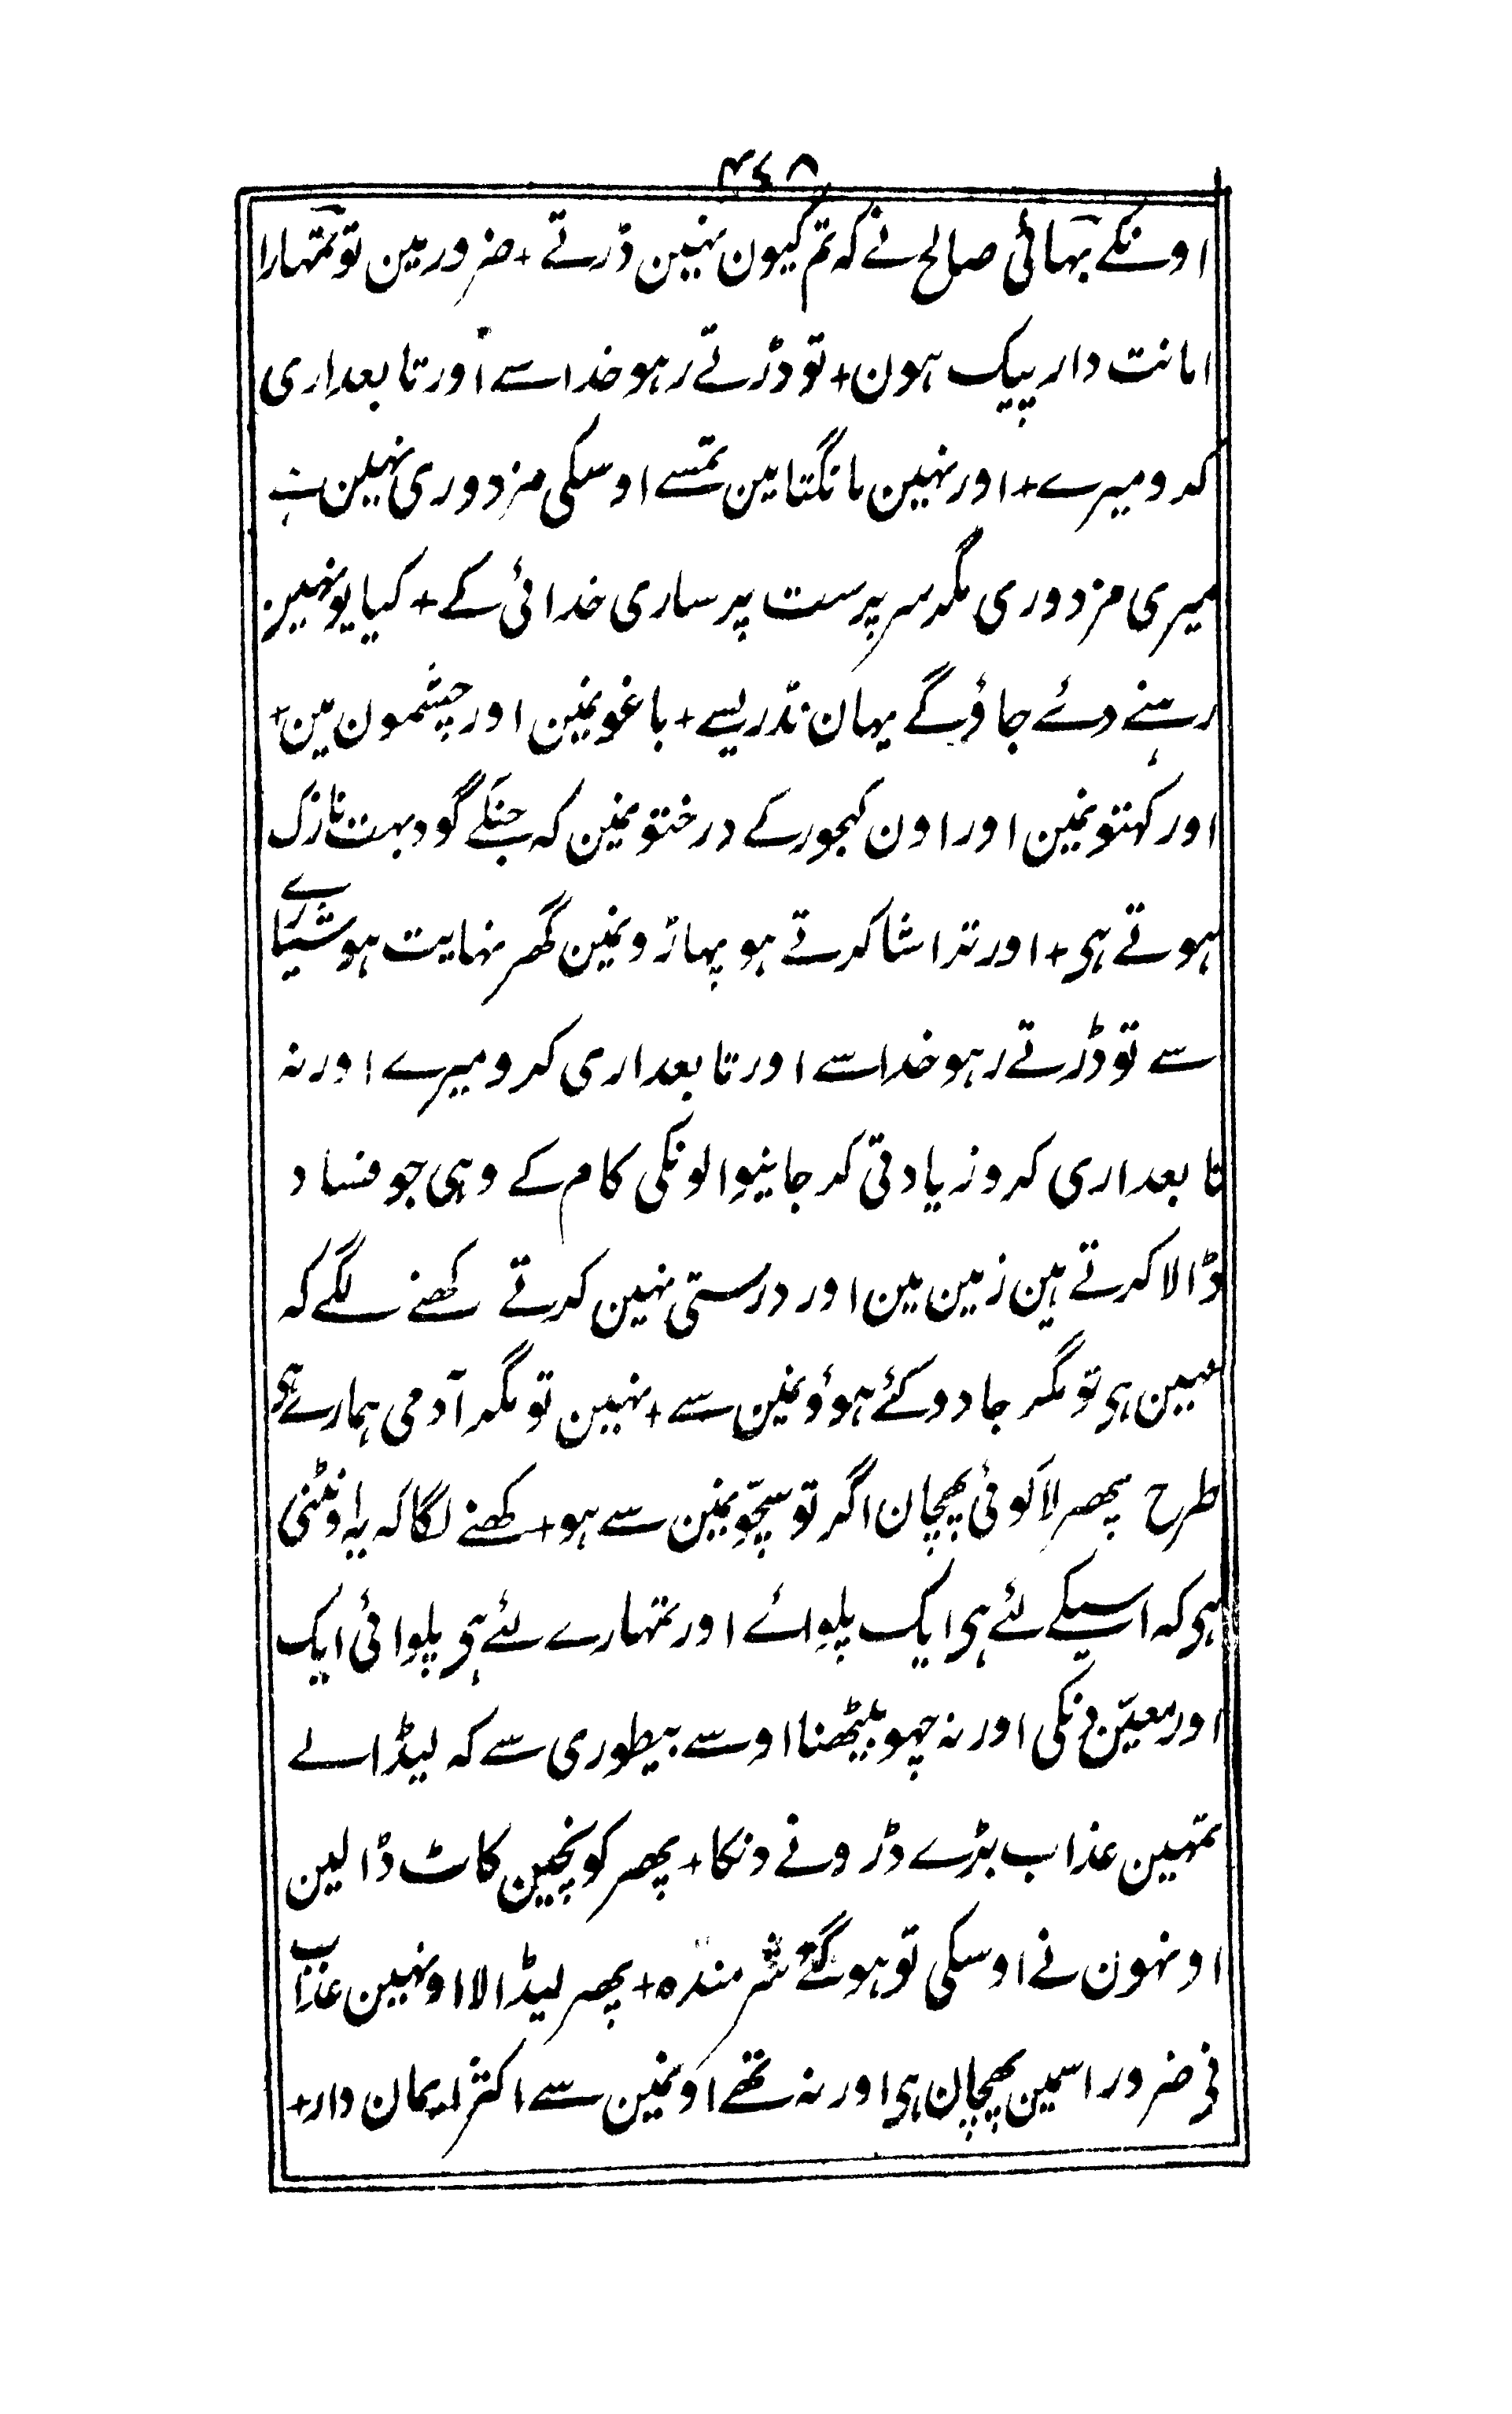 ۴۶۸
اونکے بہائی صالح نے کہ تم کیون نہین ڈرتے + ضرور مین تو تمہارا
امانت دار پیک ہون + تو ڈرتے رہو خدا سے اور تابعداری
کرو میرے + اور نہین مانگتا مین تمسے اوسکی مزدوری نہین ہے
میری مزدوری مگر سرپرست پر ساری خدائی کے + کیا یونہین
رہنے دئے جاؤگے یہان نڈریسے + باغونمین اور چشمون مین +
اور کہتونمین اور اون کہجور کے درختونمین کہ جنکے گود بہت نازک
ہوتے ہی + اور تراشا کرتے ہو پہاڑونمین گھر نہایت ہوشیارے
سے تو ڈرتے رہو خدا سے اور تابعداری کرو میرے اور نہ
تابعداری کرو زیادتی کر جانیوالونکی کام کے وہی جو فساد
ڈالا کرتے ہین زمین مین اور درستی نہین کرتے کھنے لگے کہ
نہین ہی تو مگر جادو کئے ہوؤنمین سے + نہین تو مگر آدمی ہمارے ہی
طرح پھر لا کوئی پھچان اگر تو سچّونمین سے ہو + کھنے لگا کہ یہ اونٹنی
ہی کہ اسیکے لئے ہی ایک پلوائے اور تمہارے لئے ہی پلوائی ایک
اور معیّن دنکی اور نہ چہو بیٹھنا اوسے بیطوری سے کہ لیڈالے
تمہین عذاب بڑے ڈرونے دنکا + پھر کونچین کاٹ ڈالین
اونہون نے اوسکی تو ہوگئے شرمندہ + پھر لیڈالا اونہین عذاب
نی ضرور اسمین پھچان ہی اور نہ تھے اونمین سے اکثر ایمان دار +